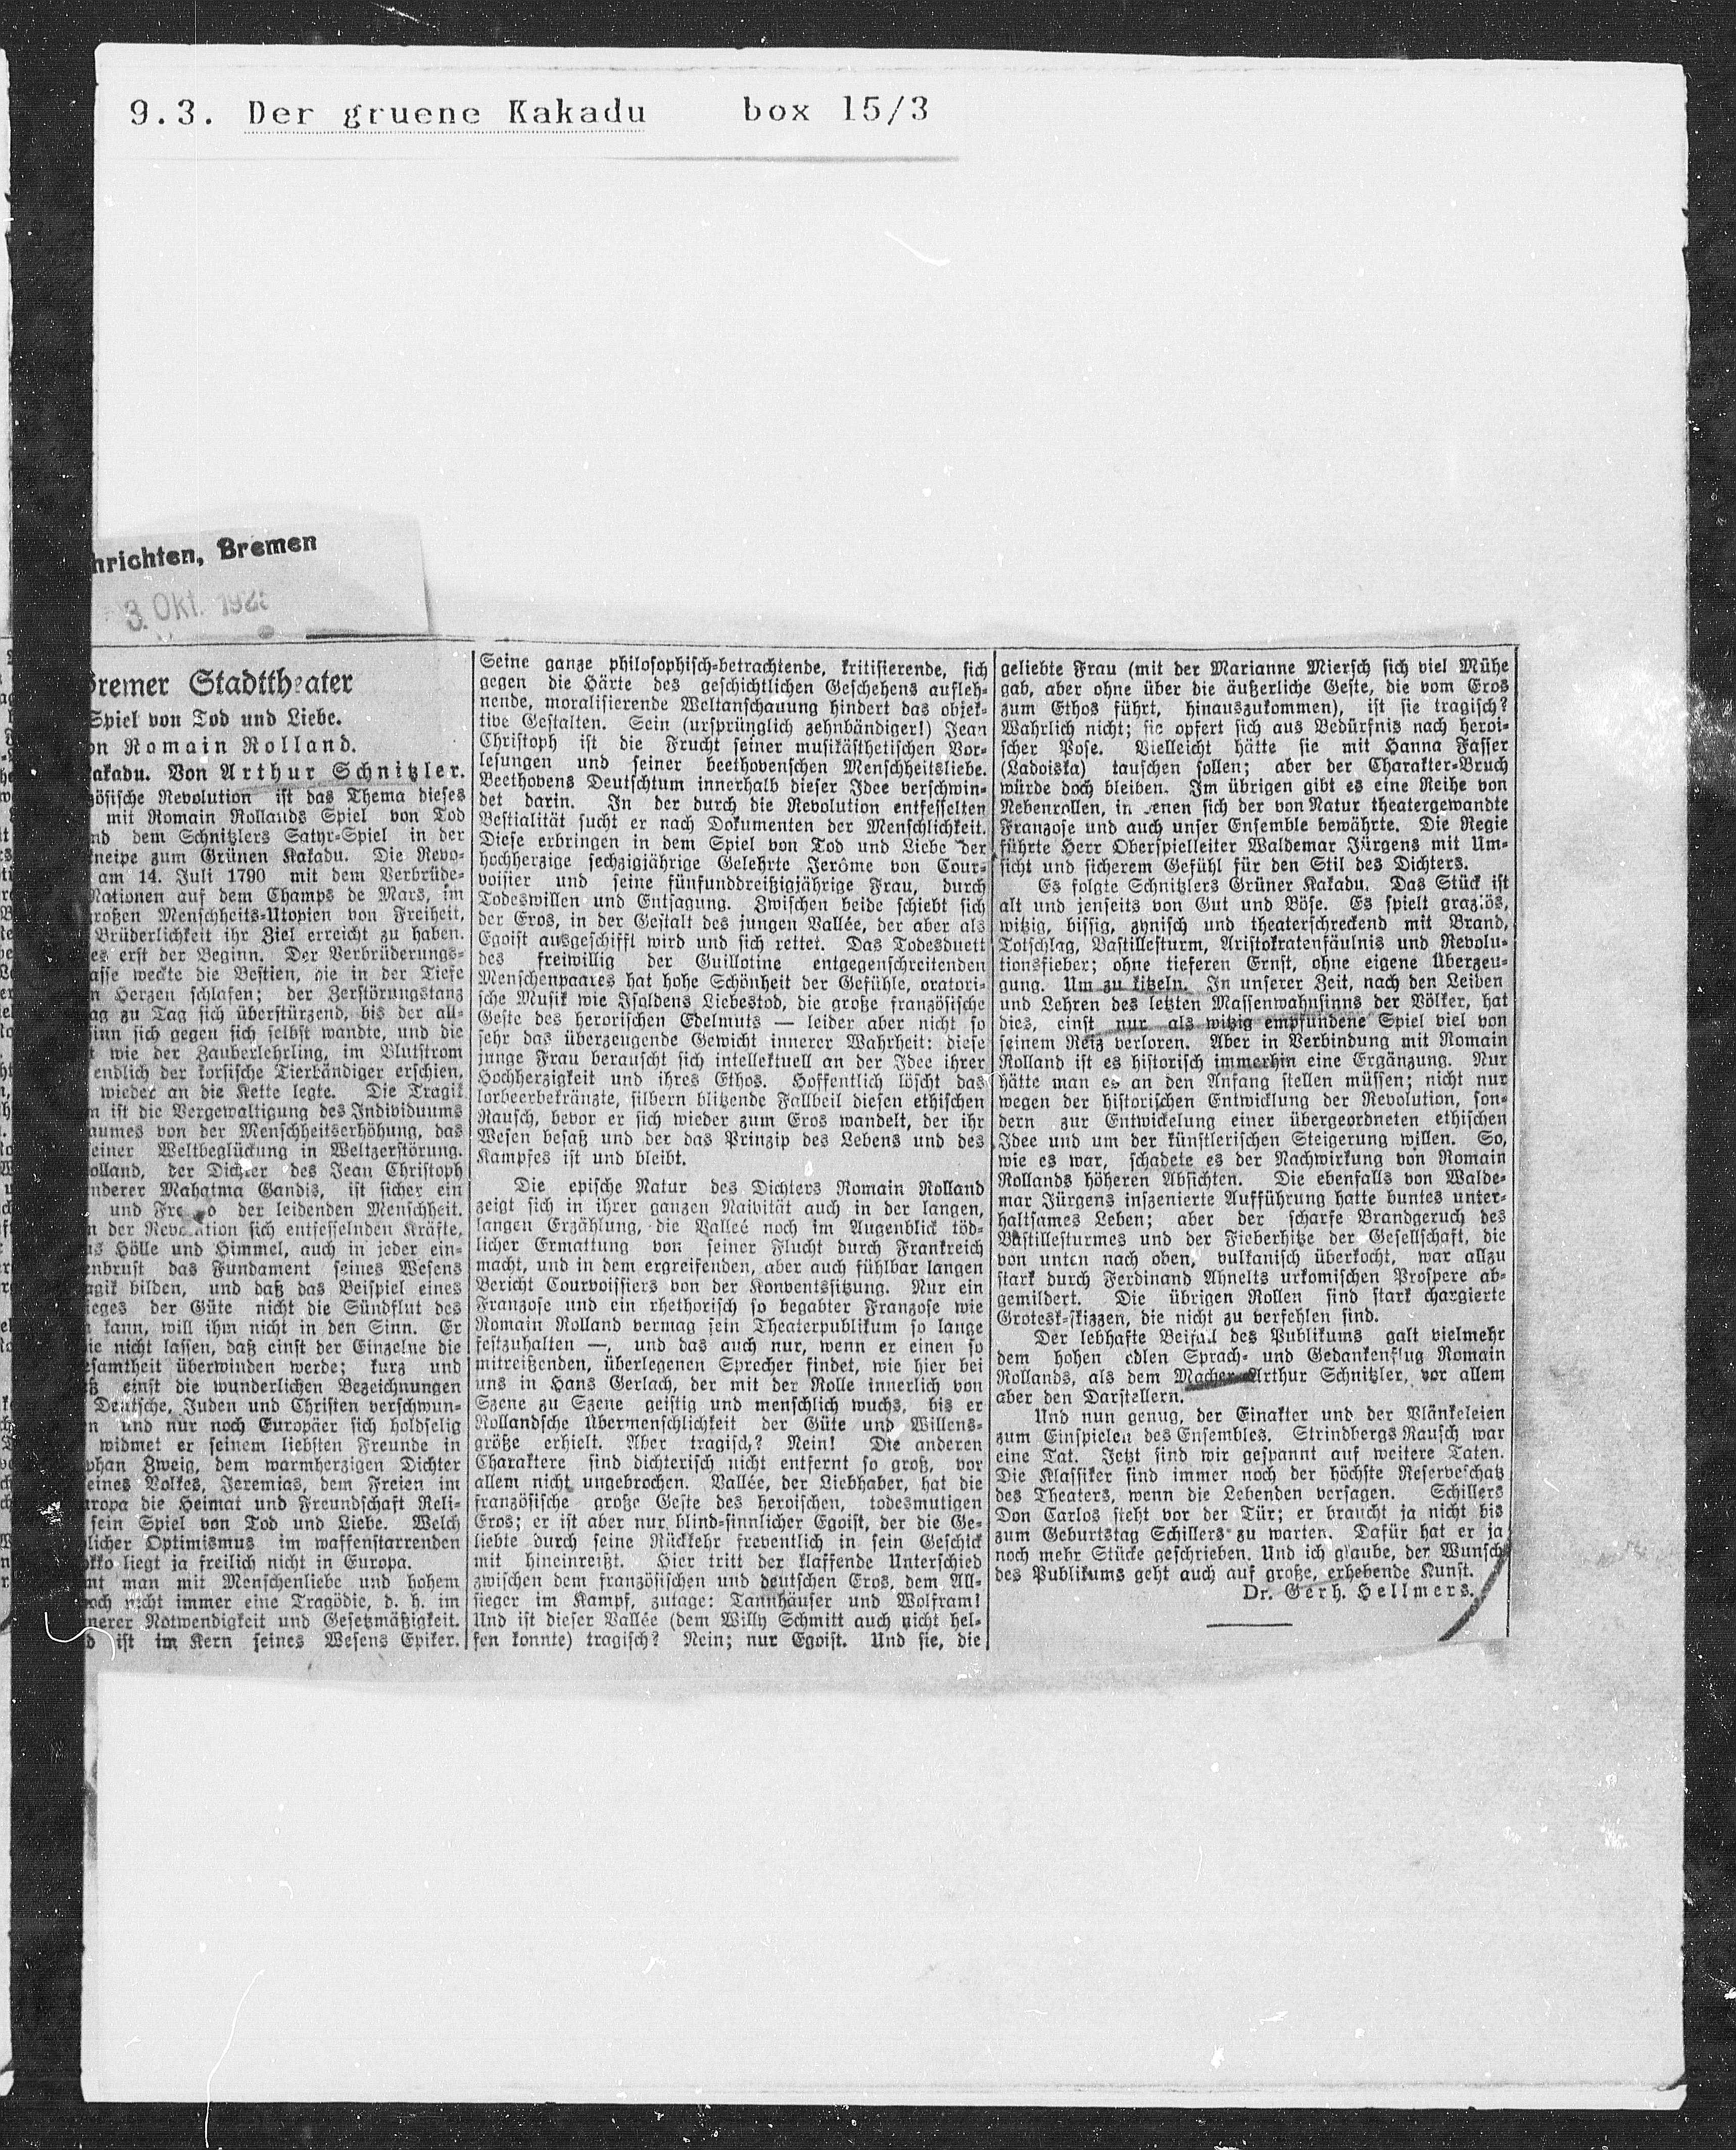 9.3. Der gruene Kakadu box 15/3
hrichten, Bremen
3. Okt. 192
Bremer Stadttheater
Spiel von Tod und Liebe.
on Romain Rolland.
akadu. Von Arthur Schnitzler.
zösische Revolution ist das Thema dieses
mit Romain Rollands Spiel von Tod
nd dem Schnitzlers Satyr-Spiel in der
kneipe zum Grünen Kakadu. Die Revo-
am 14. Juli 1790 mit dem Verbrüde-
Nationen auf dem Champs de Mars, im
großen Menschheits-Utopien von Freiheit,
Brüderlichkeit ihr Ziel erreicht zu haben.
es erst der Beginn. Der Verbrüderungs-
asse weckte die Bestien, die in der Tiefe
n Herzen schlafen; der Zerstörungstanz
ag zu Tag sich überstürzend, bis der all-
sinn sich gegen sich selbst wandte, und die
t wie der Zauberlehrling, im Blutstrom
endlich der korsische Tierbändiger erschien,
wieder an die Kette legte. Die Tragik
n ist die Vergewaltigung des Individuums
aumes von der Menschheitserhöhung, das
einer Weltbeglückung in Weltzerstörung.
olland, der Dichter des Jean Christoph
nderer Mahatma Gandis, ist sicher ein
und Fre o der leidenden Menschheit.
n der Revolution sich entfesselnden Kräfte,
us Hölle und Himmel, auch in jeder ein-
enbrust das Fundament seines Wesens
agik bilden, und daß das Beispiel eines
ieges der Güte nicht die Sündflut des
n kann, will ihm nicht in den Sinn. Er
ie nicht lassen, daß einst der Einzelne die
esamtheit überwinden werde; kurz und
ß einst die wunderlichen Bezeichnungen
Deutsche, Juden und Christen verschwun-
n und nur noch Europäer sich holdselig
widmet er seinem liebsten Freunde in
phan Zweig, dem warmherzigen Dichter
eines Volkes, Jeremias, dem Freien im
uropa die Heimat und Freundschaft Reli-
sein Spiel von Tod und Liebe. Welch
licher Optimismus im waffenstarrenden
okko liegt ja freilich nicht in Europa.
mt man mit Menschenliebe und hohem
noch nicht immer eine Tragödie, d. h. im
nerer Notwendigkeit und Gesetzmäßigkeit.
d ist im Kern seines Wesens Epiker.
Seine ganze philosophisch-betrachtende, kritisierende, sich
gegen die Härte des geschichtlichen Geschehens aufleh-
nende, moralisierende Weltanschauung hindert das objek-
tive Gestalten. Sein (ursprünglich zehnbändiger!) Jean
Christoph ist die Frucht seiner musikästhetischen Vor-
lesungen und seiner beethovenschen Menschheitsliebe.
Beethovens Deutschtum innerhalb dieser Idee verschwin-
det darin. In der durch die Revolution entfesselten
Bestialität sucht er nach Dokumenten der Menschlichkeit.
Diese erbringen in dem Spiel von Tod und Liebe der
hochherzige sechzigjährige Gelehrte Jerôme von Cour-
voisier und seine fünfunddreißigjährige Frau, durch
Todeswillen und Entsagung. Zwischen beide schiebt sich
der Eros, in der Gestalt des jungen Vallée, der aber als
Egoist ausgeschifft wird und sich rettet. Das Todesduett
des freiwillig der Guillotine entgegenschreitenden
Menschenpaares hat hohe Schönheit der Gefühle, oratori-
sche Musik wie Isoldens Liebestod, die große französische
Geste des herorischen Edelmuts — leider aber nicht so
sehr das überzeugende Gewicht innerer Wahrheit: diese
junge Frau berauscht sich intellektuell an der Idee ihrer
Hochherzigkeit und ihres Ethos. Hoffentlich löscht das
lorbeerbekränzte, silbern blitzende Fallbeil diesen ethischen
Rausch, bevor er sich wieder zum Eros wandelt, der ihr
Wesen besaß und der das Prinzip des Lebens und des
Kampfes ist und bleibt.
Die epische Natur des Dichters Romain Rolland
zeigt sich in ihrer ganzen Naivität auch in der langen,
langen Erzählung, die Valleé noch im Augenblick töd-
licher Ermattung von seiner Flucht durch Frankreich
macht, und in dem ergreifenden, aber auch fühlbar langen
Bericht Courvoissiers von der Konventssitzung. Nur ein
Franzose und ein rhethorisch so begabter Franzose wie
Romain Rolland vermag sein Theaterpublikum so lange
festzuhalten —, und das auch nur, wenn er einen so
mitreißenden, überlegenen Sprecher findet, wie hier bei
uns in Hans Gerlach, der mit der Rolle innerlich von
Szene zu Szene geistig und menschlich wuchs, bis er
Rollandsche Übermenschlichkeit der Güte und Willens-
größe erhielt. Aber tragisch? Nein! Die anderen
Charaktere sind dichterisch nicht entfernt so groß, vor
allem nicht ungebrochen. Vallée, der Liebhaber, hat die
französische große Geste des heroischen, todesmutigen
Eros; er ist aber nur blind-sinnlicher Egoist, der die Ge-
liebte durch seine Rückkehr freventlich in sein Geschick
mit hineinreißt. Hier tritt der klaffende Unterschied
zwischen dem französischen und deutschen Eros, dem All-
sieger im Kampf, zutage: Tannhäuser und Wolfram!
Und ist dieser Vallée (dem Willy Schmitt auch nicht hel-
fen konnte) tragisch? Nein; nur Egoist. Und sie, die
geliebte Frau (mit der Marianne Miersch sich viel Mühe
gab, aber ohne über die äußerliche Geste, die vom Eros
zum Ethos führt, hinauszukommen), ist sie tragisch?
Wahrlich nicht; sie opfert sich aus Bedürfnis nach heroi-
scher Pose. Vielleicht hätte sie mit Hanna Fasser
(Ladoiska) tauschen sollen; aber der Charakter-Bruch
würde doch bleiben. Im übrigen gibt es eine Reihe von
Nebenrollen, in enen sich der von Natur theatergewandte
Franzose und auch unser Ensemble bewährte. Die Regie
führte Herr Oberspielleiter Waldemar Jürgens mit Um-
sicht und sicherem Gefühl für den Stil des Dichters.
Es folgte Schnitzlers Grüner Kakadu. Das Stück ist
alt und jenseits von Gut und Böse. Es spielt graziös,
witzig, bissig, zynisch und theaterschreckend mit Brand,
Totschlag, Bastillesturm, Aristokratenfäulnis und Revolu-
tionsfieber; ohne tieferen Ernst, ohne eigene Überzeu-
gung. Um zu kitzeln. In unserer Zeit, nach den Leiden
und Lehren des letzten Massenwahnsinns der Völker, hat
dies, einst nur als witzig empfundene Spiel viel von
seinem Reiz verloren. Aber in Verbindung mit Romain
Rolland ist es historisch immerhin eine Ergänzung. Nur
hätte man es an den Anfang stellen müssen; nicht nur
wegen der historischen Entwicklung der Revolution, son-
dern zur Entwickelung einer übergeordneten ethischen
Idee und um der künstlerischen Steigerung willen. So,
wie es war, schadete es der Nachwirkung von Romain
Rollands höheren Absichten. Die ebenfalls von Walde-
mar Jürgens inszenierte Aufführung hatte buntes unter-
haltsames Leben; aber der scharfe Brandgeruch des
Bastillesturmes und der Fieberhitze der Gesellschaft, die
von unten nach oben, vulkanisch überkocht, war allzu
stark durch Ferdinand Ahnelts urkomischen Prospere ab-
gemildert. Die übrigen Rollen sind stark chargierte
Grotesk-skizzen, die nicht zu verfehlen sind.
Der lebhafte Beifall des Publikums galt vielmehr
dem hohen edlen Sprach- und Gedankenflug Romain
Rollands, als dem Macher Arthur Schnitzler, vor allem
aber den Darstellern.
Und nun genug, der Einakter und der Plänkeleien
zum Einspielen des Ensembles. Strindbergs Rausch war
eine Tat. Jetzt sind wir gespannt auf weitere Taten.
Die Klassiker sind immer noch der höchste Reserveschatz
des Theaters, wenn die Lebenden versagen. Schillers
Don Carlos steht vor der Tür; er braucht ja nicht bis
zum Geburtstag Schillers zu warten. Dafür hat er ja
noch mehr Stücke geschrieben. Und ich glaube, der Wunsch
des Publikums geht auch auf große, erhebende Kunst.
Dr. Gerh. Hellmers.